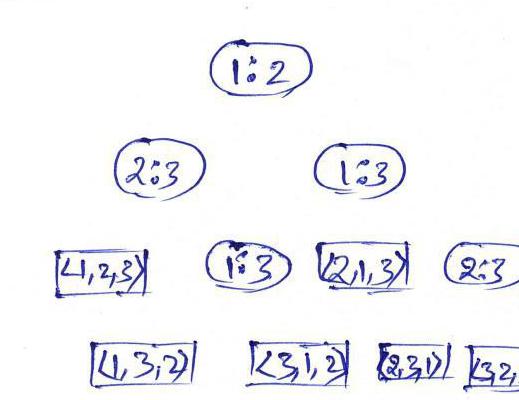 1:2
2:3 1:3
⟨1,2,3⟩ 1:3 ⟨2,1,3⟩ 2:3
⟨1,3,2⟩ ⟨3,1,2⟩ ⟨2,3,1⟩ ⟨3,2,